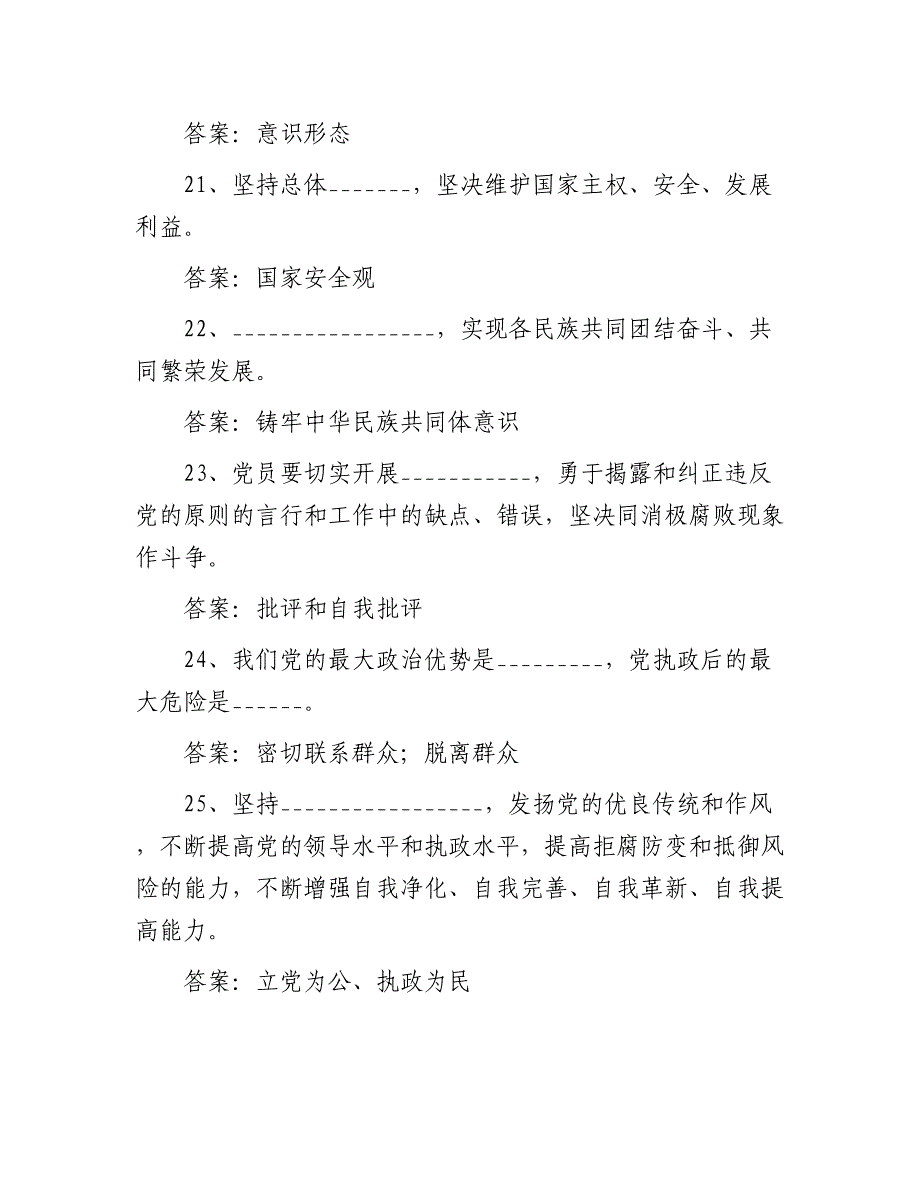 答案：意识形态
21、坚持总体_______，坚决维护国家主权、安全、发展
利益。
答案：国家安全观
22、_________________，实现各民族共同团结奋斗、共
同繁荣发展。
答案：铸牢中华民族共同体意识
23、党员要切实开展___________，勇于揭露和纠正违反
党的原则的言行和工作中的缺点、错误，坚决同消极腐败现象
作斗争。
答案：批评和自我批评
24、我们党的最大政治优势是_________，党执政后的最
大危险是______。
答案：密切联系群众；脱离群众
25、坚持_________________，发扬党的优良传统和作风
，不断提高党的领导水平和执政水平，提高拒腐防变和抵御风
险的能力，不断增强自我净化、自我完善、自我革新、自我提
高能力。
答案：立党为公、执政为民